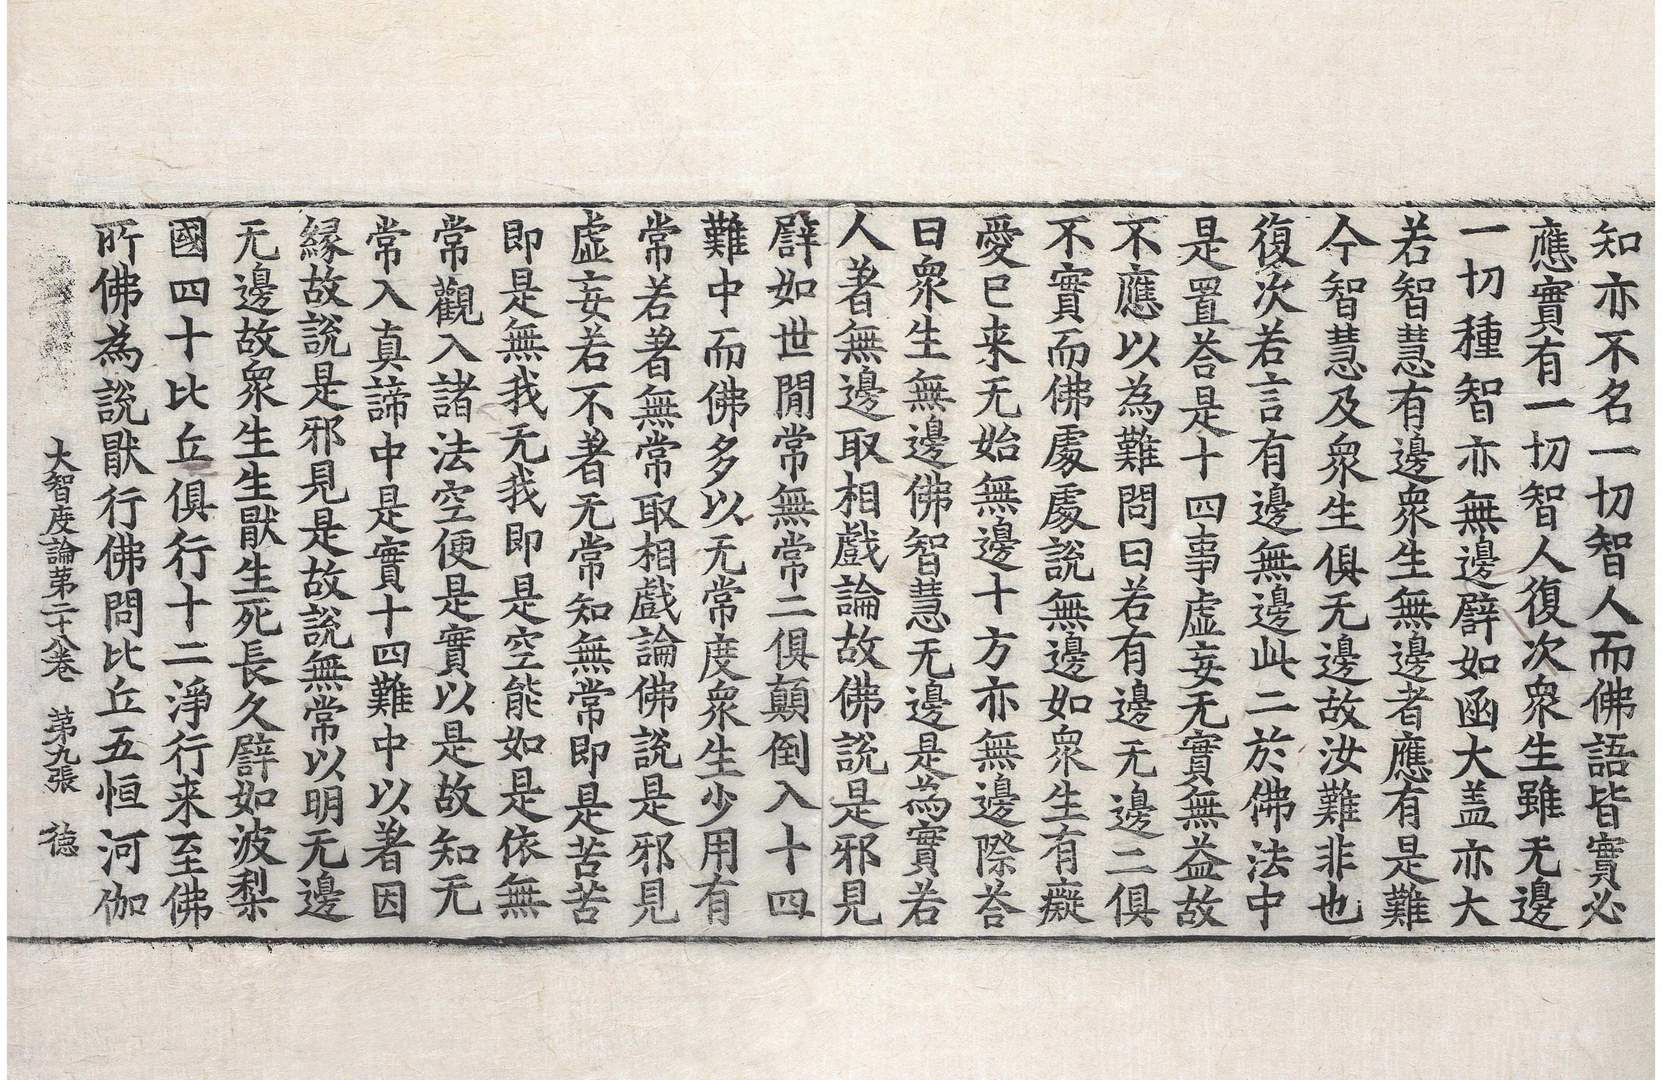 知亦不名一切智人而佛語皆實必
應實有一切智人復次衆生雖无邊
一切種智亦無邊譬如函大盖亦大
若智慧有邊衆生無邊者應有是難
今智慧及衆生俱无邊故汝難非也
復次若言有邊無邊此二於佛法中
是置荅是十四事虛妄无實無益故
不應以為難問曰若有邊无邊二俱
不實而佛處處說無邊如衆生有癡
愛已来无始無邊十方亦無邊際荅
曰衆生無邊佛智慧无邊是為實若
人著無邊取相戲論故佛說是邪見
譬如世間常無常二俱顛倒入十四
難中而佛多以无常度衆生少用有
常若著無常取相戲論佛說是邪見
虛妄若不著无常知無常即是苦苦
即是無我无我即是空能如是依無
常觀入諸法空便是實以是故知无
常入真諦中是實十四難中以著因
緣故說是邪見是故說無常以明无邊
无邊故衆生生猒生死長久譬如波梨
國四十比丘俱行十二淨行来至佛
所佛為說猒行佛問比丘五恒河伽
大智度論第二十八卷 第九張 德